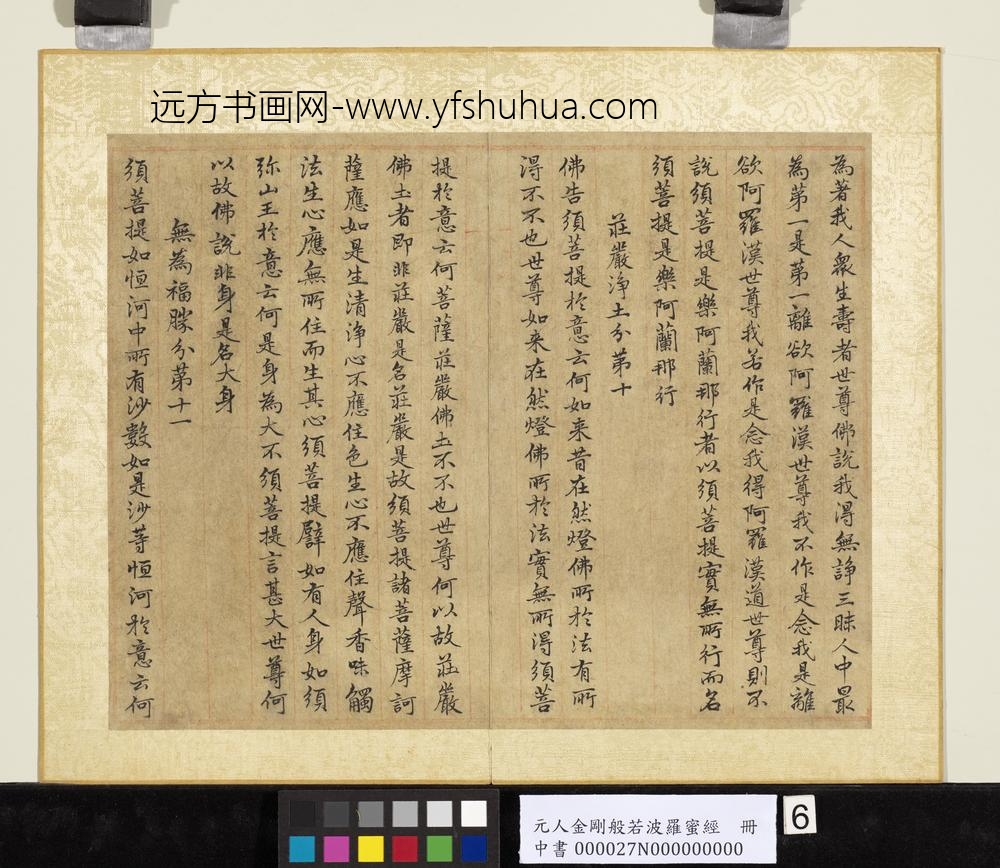 远方书画网-www.yfshuhua.com
為著我人衆生壽者世尊佛說我得無諍三昧人中最
為第一是第一離欲阿羅漢世尊我不作是念我是離
欲阿羅漢世尊我若作是念我得阿羅漢道世尊則不
說須菩提是樂阿蘭那行者以須菩提實無所行而名
須菩提是樂阿蘭那行
莊嚴淨土分第十
佛告須菩提於意云何如来昔在然燈佛所於法有所
得不不也世尊如来在然燈佛所於法實無所得須菩
提於意云何菩薩莊嚴佛土不不也世尊何以故莊嚴
佛土者即非莊嚴是名莊嚴是故須菩提諸菩薩摩訶
薩應如是生清淨心不應住色生心不應住聲香味觸
法生心應無所住而生其心須菩提譬如有人身如須
弥山王於意云何是身為大不須菩提言甚大世尊何
以故佛說非身是名大身
無為福勝分第十一
須菩提如恒河中所有沙數如是沙等恒河於意云何
元人金剛般若波羅蜜經 冊
中書 000027N000000000
6